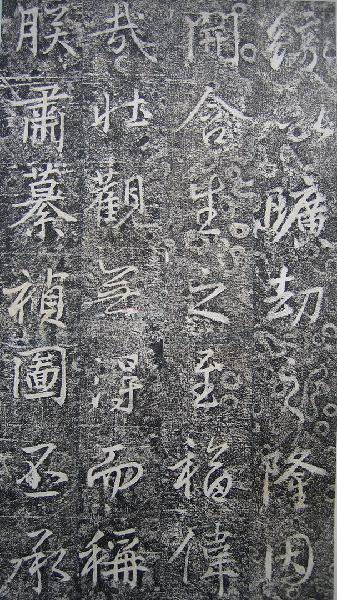 以曠劫之隆因
開含生之至福偉
哉壯觀無得而稱
朕肅纂禎圖丕承